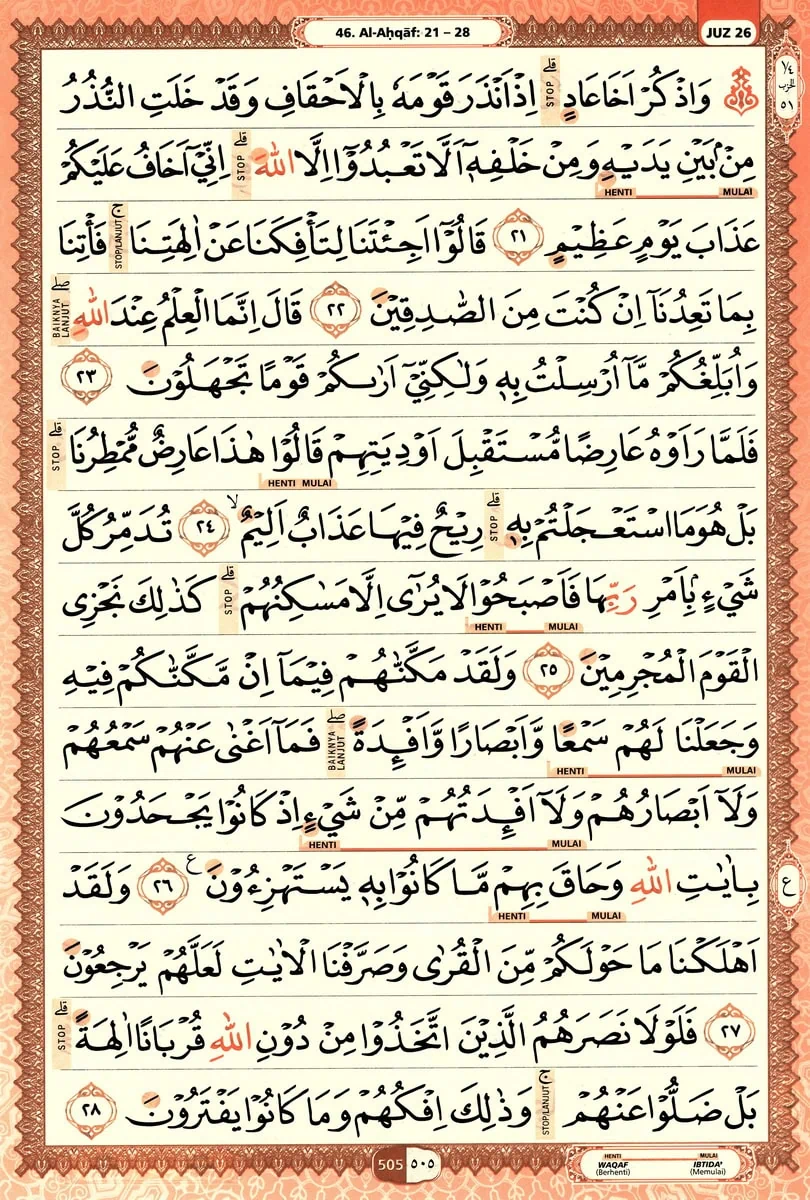 46. Al-Aḥqāf: 21 – 28
JUZ 26
١/٤
الحزب
٥١
وَاذْكُرْ اَخَا عَادٍۗ اِذْ اَنْذَرَ قَوْمَهٗ بِالْاَحْقَافِ وَقَدْ خَلَتِ النُّذُرُ
STOP
مِنْۢ بَيْنِ يَدَيْهِ وَمِنْ خَلْفِهٖٓ اَلَّا تَعْبُدُوْٓا اِلَّا اللّٰهَۗ اِنِّيْٓ اَخَافُ عَلَيْكُمْ
STOP
HENTI MULAI
عَذَابَ يَوْمٍ عَظِيْمٍ ٢١ قَالُوْٓا اَجِئْتَنَا لِتَأْفِكَنَا عَنْ اٰلِهَتِنَاۚ فَأْتِنَا
STOP/LANJUT
بِمَا تَعِدُنَآ اِنْ كُنْتَ مِنَ الصّٰدِقِيْنَ ٢٢ قَالَ اِنَّمَا الْعِلْمُ عِنْدَ اللّٰهِۖ
BAIKNYA LANJUT
وَاُبَلِّغُكُمْ مَّآ اُرْسِلْتُ بِهٖ وَلٰكِنِّيْٓ اَرٰىكُمْ قَوْمًا تَجْهَلُوْنَ ٢٣
فَلَمَّا رَاَوْهُ عَارِضًا مُّسْتَقْبِلَ اَوْدِيَتِهِمْ قَالُوْا هٰذَا عَارِضٌ مُّمْطِرُنَاۗ
STOP
HENTI MULAI
بَلْ هُوَ مَا اسْتَعْجَلْتُمْ بِهٖۗ رِيْحٌ فِيْهَا عَذَابٌ اَلِيْمٌۙ ٢٤ تُدَمِّرُ كُلَّ
STOP
شَيْءٍۢ بِاَمْرِ رَبِّهَا فَاَصْبَحُوْا لَا يُرٰٓى اِلَّا مَسٰكِنُهُمْۗ كَذٰلِكَ نَجْزِى
STOP
HENTI MULAI
الْقَوْمَ الْمُجْرِمِيْنَ ٢٥ وَلَقَدْ مَكَّنّٰهُمْ فِيْمَآ اِنْ مَّكَّنّٰكُمْ فِيْهِ
وَجَعَلْنَا لَهُمْ سَمْعًا وَّاَبْصَارًا وَّاَفْـِٕدَةًۖ فَمَآ اَغْنٰى عَنْهُمْ سَمْعُهُمْ
BAIKNYA LANJUT
HENTI MULAI
وَلَآ اَبْصَارُهُمْ وَلَآ اَفْـِٕدَتُهُمْ مِّنْ شَيْءٍ اِذْ كَانُوْا يَجْحَدُوْنَ
HENTI MULAI
بِاٰيٰتِ اللّٰهِ وَحَاقَ بِهِمْ مَّا كَانُوْا بِهٖ يَسْتَهْزِءُوْنَ ࣖ ٢٦ وَلَقَدْ
ع
HENTI MULAI
اَهْلَكْنَا مَا حَوْلَكُمْ مِّنَ الْقُرٰى وَصَرَّفْنَا الْاٰيٰتِ لَعَلَّهُمْ يَرْجِعُوْنَ
٢٧ فَلَوْلَا نَصَرَهُمُ الَّذِيْنَ اتَّخَذُوْا مِنْ دُوْنِ اللّٰهِ قُرْبَانًا اٰلِهَةًۗ
STOP
بَلْ ضَلُّوْا عَنْهُمْۚ وَذٰلِكَ اِفْكُهُمْ وَمَا كَانُوْا يَفْتَرُوْنَ ٢٨
STOP/LANJUT
505 ٥٠٥
HENTI MULAI
WAQAF IBTIDA'
(Berhenti) (Memulai)